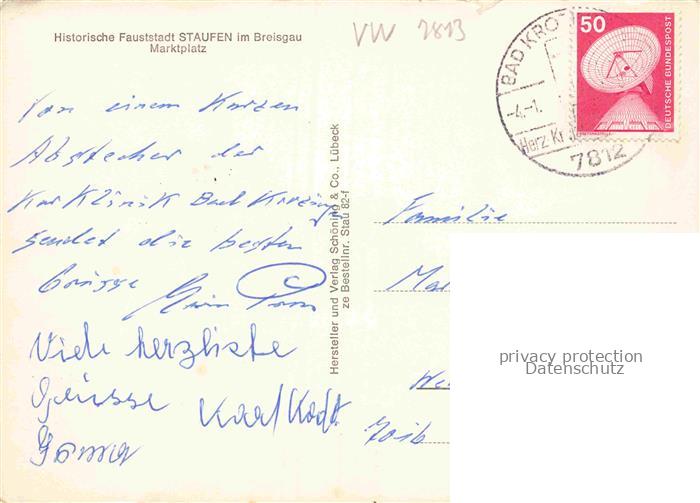 Historische Fauststadt STAUFEN im Breisgau
Marktplatz
VW 2813
BAD KRO
-4.-1.
Herz Kr
7812
50
DEUTSCHE BUNDESPOST
Von einem Kurzen
Abstecher der
Kur Klinik Bad Krozingen
sendet die besten
Grüsse
Viele herzliche
Grüsse Karl
Hersteller und Verlag Schöning & Co., Lübeck
ze Bestellnr. Stau 82-f
Familie
Ma
We
privacy protection
Datenschutz